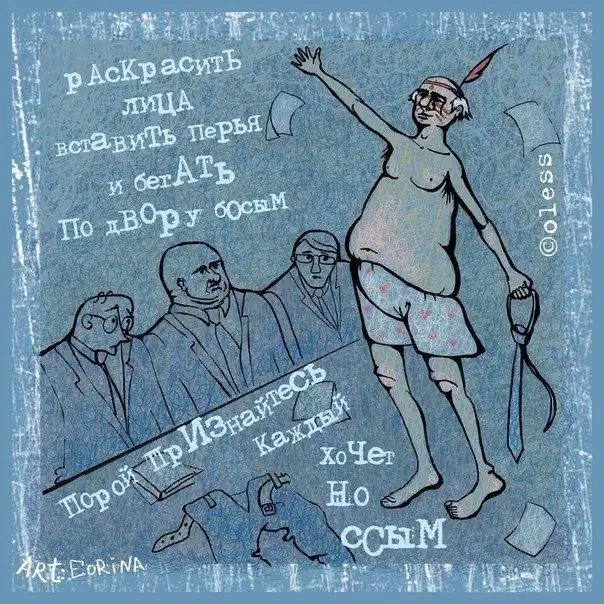 раскрасить
лица
вставить перья
и бегать
по двору босым
порой признайтесь
каждый
хочет
но
ссым
©oless
Art: Eorina